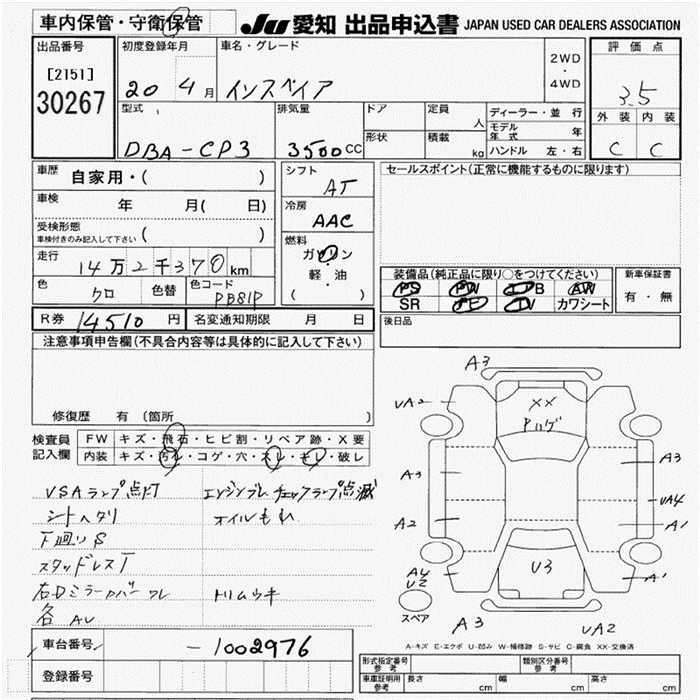 車内保管・守衛保管
JU 愛知 出品申込書 JAPAN USED CAR DEALERS ASSOCIATION
出品番号
[2151]
30267
初度登録年月
20 4月
車名・グレード
インスペイア
2WD
・
4WD
評価点
3.5
外装 内装
C C
型式
DBA-CP3
排気量
3500cc
ドア
形状
定員 人
積載 kg
ディーラー・並行
モデル年式 年
ハンドル 左・右
車歴
自家用・( )
車検
年 月( 日)
受検形態
車検付きのみ記入して下さい ( )
走行
14万2千370km
色
クロ
色替
色コード
PB81P
シフト
AT
冷房
AAC
燃料
ガソリン
軽・油
( )
セールスポイント(正常に機能するものに限ります)
装備品(純正品に限り○をつけてください)
PS PW B AW
SR TV カワシート
新車保証書
有・無
R券 14510円
名変通知期限 月 日
後日品
注意事項申告欄(不具合内容等は具体的に記入して下さい)
修復歴 有(箇所 )
検査員記入欄
FW キズ・飛石・ヒビ割・リペア跡・X要
内装 キズ・汚レ・コゲ・穴・スレ・キレ・破レ
VSAランプ点灯 エンジンブレ チェックランプ点滅
シートヘタリ オイルもれ
下廻りS
スタッドレスT
右Dミラーカバーワレ トリムウキ
各AU
A3
UA2
XX
Pハゲ
A3
A3
UA4
A2
A1
A4
U2
U3
A1
スペア
A3
UA2
A-キズ E-エクボ U-凹み W-補修跡 S-サビ C-腐食 XX-交換済
車台番号
-1002976
登録番号
形式指定番号参考
類別区分番号参考
車庫証明用参考 長さ cm 幅 cm 高さ cm